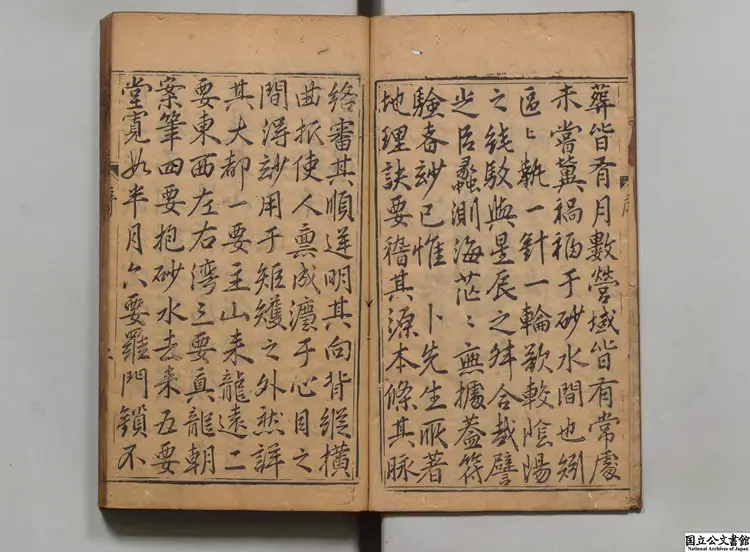 葬皆有月數營域皆有常處
未嘗冀禍福于砂水間也矧
區〻執一針一輪較陰陽
之綫駁與星辰之舛合哉譬
之以蠡測海茫〻無據葢符
驗者眇已惟 卜先生所著
地理訣要稽其源本條其脉
絡審其順逆明其向背縱橫
曲折使人禀成灋于心目之
間得玅用于矩矱之外然詳
其大都一要主山來龍遠二
要東西左右灣三要真龍朝
案筆四要抱砂水去來五要
堂寬如半月六要羅門鎖不
序
国立公文書館
National Archives of Japan